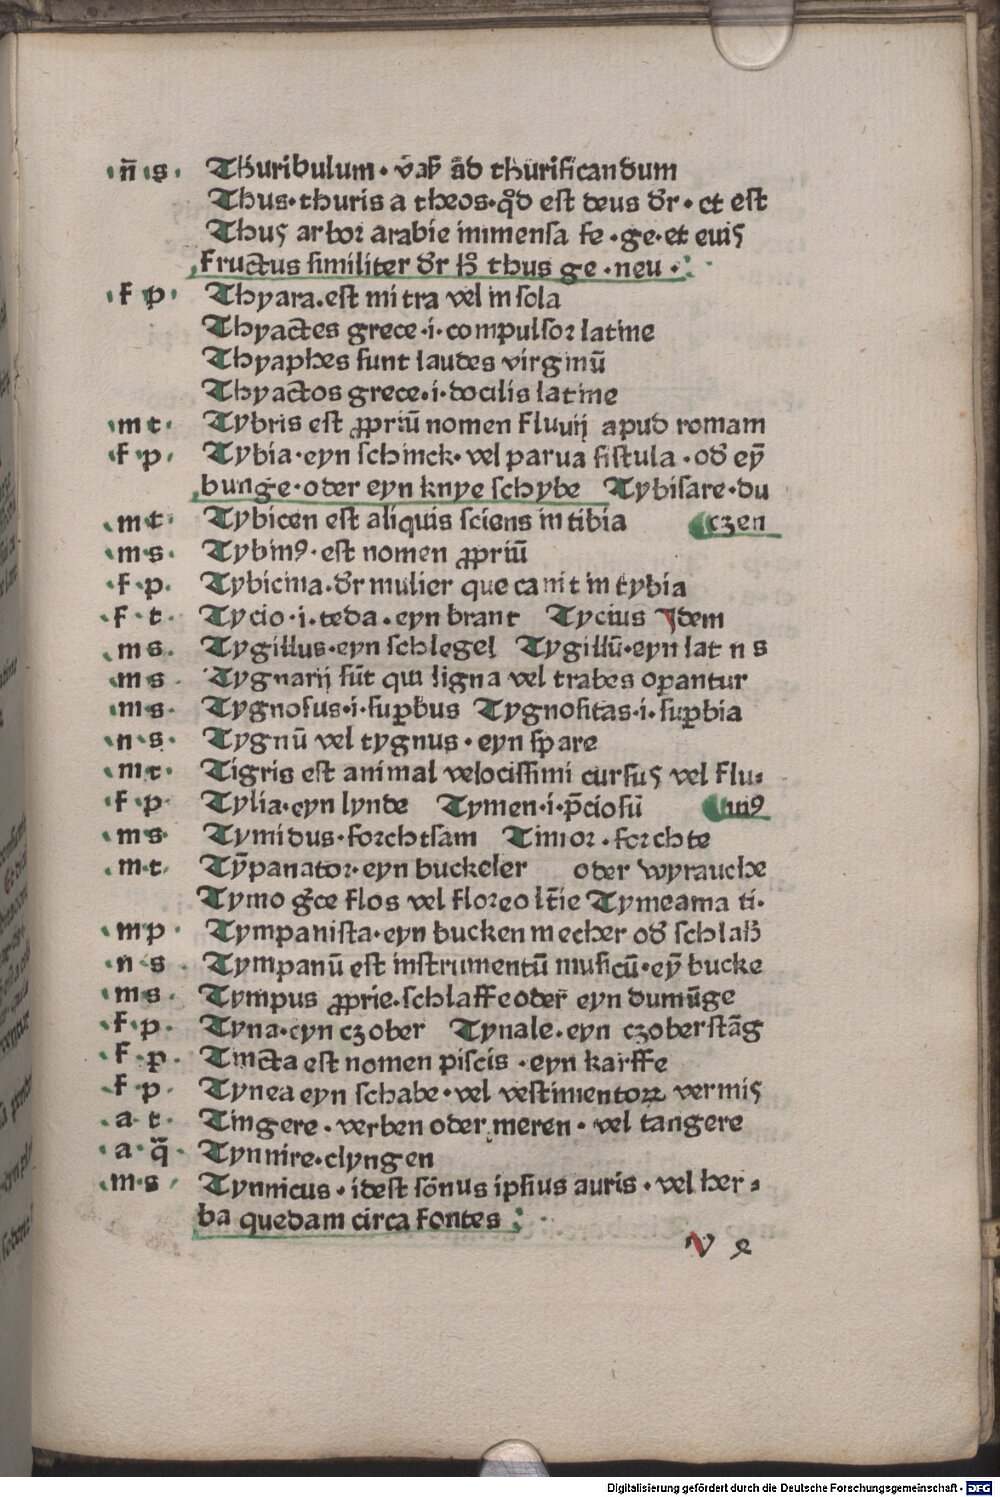 ·n̄·s· Thuribulum· v̄ab̄ ād thurificandum
Thus·thuris a theos·qd̄ est deus dr̄· et est
Thuꝰ arbor arabie inmensa fe·ge·et euiꝰ
fructus similiter dr̄ hͦ thus ge·neu·
·f·p· Thyara·est mitra vel insola
Thyactes grece·i·compulsor latine
Thyaphes sunt laudes virginū
Thyactos grece·i·docilis latine
·m t· Tybris est ꝓpriū nomen fluuij apud romam
·f·p· Tybia·eyn schinck·vel parua fistula·od̄ eȳ
bunge·oder eyn knye schybe Tybisare·du
·m t· Tybicen est aliquis sciens in tibia czen
·m·s· Tybinꝰ·est nomen ꝓpriū
·f·p· Tybicina·dr̄ mulier que canit in tybia
·f·t· Tycio·i·teda·eyn brant Tycius ydem
·m s· Tygillus·eyn schlegel Tygillū·eyn lat n s
·m s· Tygnarij sūt qui ligna vel trabes oꝑantur
·m·s· Tygnosus·i·suꝑbus Tygnositas·i·suꝑbia
·n·s· Tygnū vel tygnus·eyn spare
·m t· Tigris est animal velocissimi cursuꝰ vel flu⸗
·f·p· Tylia·eyn lynde Tymen·i·p̄ciosū uiꝰ
·m s· Tymidus·forchtsam Timor·forchte
·m·t· Tȳpanator·eyn buckeler oder wyrauche
Tymo gͤce flos vel floreo lt̄ie Tymeama ti·
·m p· Tympanista·eyn bucken mecher od̄ schlah̄
·n s· Tympanū est instrumentū musicū·eȳ bucke
·m s· Tympus ꝓprie·schlaffe oder eyn dumūge
·f·p· Tyna·eyn czober Tynale·eyn czoberstāg
·f p· Tincta est nomen piscis·eyn karffe
·f p· Tynea eyn schabe·vel vestimentoꝝ vermiꝰ
·a·t· Tingere·verben oder meren·vel tangere
·a·q̄· Tynnire·clyngen
·m·s· Tynnicus·idest sōnus ipsius auris·vel her⸗
ba quedam circa fontes
v e
Digitalisierung gefördert durch die Deutsche Forschungsgemeinschaft - DFG